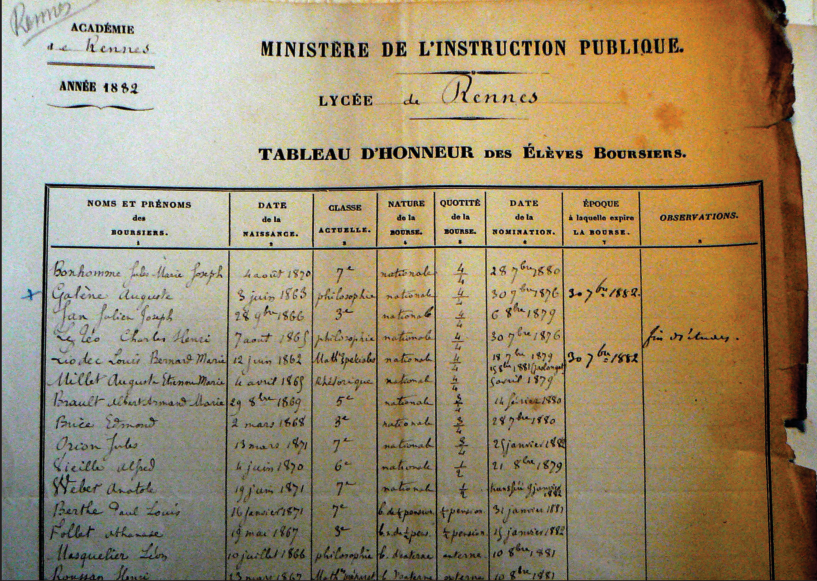 Rennes
ACADÉMIE
de Rennes
ANNÉE 1882
MINISTÈRE DE L'INSTRUCTION PUBLIQUE.
LYCÉE de Rennes
TABLEAU D'HONNEUR DES ÉLÈVES BOURSIERS.
NOMS ET PRÉNOMS des BOURSIERS. 1 DATE de la NAISSANCE. 2 CLASSE ACTUELLE. 3 NATURE de la BOURSE. 4 QUOTITÉ de la BOURSE. 5 DATE de la NOMINATION. 6 ÉPOQUE à laquelle expire LA BOURSE. 7 OBSERVATIONS. 8
Bonhomme Jules Marie Joseph 4 août 1870 7e nationale 4/4 28 7bre 1880
+ Galène Auguste 3 juin 1863 philosophie nationale 4/4 30 7bre 1876 30 7bre 1882.
Jan Julien Joseph 28 9bre 1866 3e nationale 4/4 6 8bre 1879
Charles Henri 7 août 1865 philosophie nationale 4/4 30 7bre 1876 fin d'études.
Louis Bernard Marie 12 juin 1862 nationale 4/4 18 7bre 1879 30 7bre 1882
Millet Auguste Etienne Marie 4 avril 1865 Rhétorique national 4/4 5 avril 1879
Brault Albert Armand Marie 29 8bre 1869 5e nationale 3/4 14 février 1880
Brice Edmond 2 mars 1868 3e nationale 3/4 28 7bre 1880
Orion Jules 13 mars 1871 7e nationale 3/4 25 janvier 1882
Vieille Alfred 4 juin 1870 6e nationale 1/2 21 8bre 1879
Weber Anatole 19 juin 1871 7e national 1/2 9 janvier 1882
Berthe Paul Louis 16 janvier 1871 7e b. de ½ pension ½ pension 31 janvier 1881
Follet Athanase 19 mai 1867 3e b. de ½ pens. ½ pension 15 janvier 1882
Masquelier Léon 10 juillet 1866 philosophie b. d'externe externe 10 8bre 1881
Roussan Henri 23 mars 1867 b. d'externe externe 10 8bre 1881